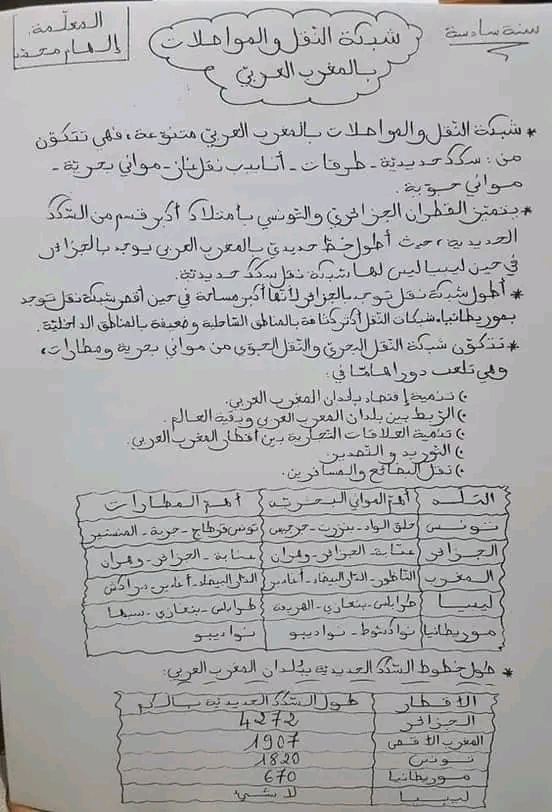 سنة سادسة
شبكة النقل والمواصلات
بالمغرب العربي
المعلّمة:
إلهام محمد
* شبكة النّقل والمواصلات بالمغرب العربيّ متنوّعة، فهي تتكوّن
من: سكك حديديّة - طرقات - أنابيب نقل غاز - مواني بحريّة -
مواني جوّية.
* يتميّز القطران الجزائري والتونسي بامتلاك أكبر قسم من السّكك
الحديديّة، حيث أطول خطّ حديدي بالمغرب العربي يوجد بالجزائر
في حين ليبيا ليس لها شبكة نقل سكك حديديّة.
* أطول شبكة نقل توجد بالجزائر لأنّها أكبر مساحة في حين أقصر شبكة نقل توجد
بموريطانيا، شبكات النّقل أكثر كثافة بالمناطق السّاحلية وضعيفة بالمناطق الداخليّة.
* تتكوّن شبكة النّقل البحريّ والنّقل الجوّي من مواني بحرية ومطارات،
وهي تلعب دورا هامّا في:
تنمية إقتصاد بلدان المغرب العربي.
الرّبط بين بلدان المغرب العربي وبقيّة العالم.
تنمية العلاقات التّجارية بين أقطار المغرب العربي.
التّوريد والتّصدير.
نقل البضائع والمسافرين.
البلد أهمّ المواني البحريّة أهمّ المطارات
تونس حلق الواد - بنزرت - جرجيس تونس قرطاج - جربة - المنستير
الجزائر عنابة - الجزائر - وهران عنابة - الجزائر - وهران
المغرب النّاظور - الدّار البيضاء - أغادير الدّار البيضاء - أغادير - مراكش
ليبيا طرابلس - بنغازي - طرابلس - بنغازي - سبها
موريطانيا نواكشوط - نواديبو نواديبو
* طول خطوط السّكك الحديديّة ببلدان المغرب العربي:
الأقطار طول السّكك الحديديّة بالكم
الجزائر 4272
المغرب الأقصى 1907
تونس 1820
موريطانيا 670
ليبيا لا شيء